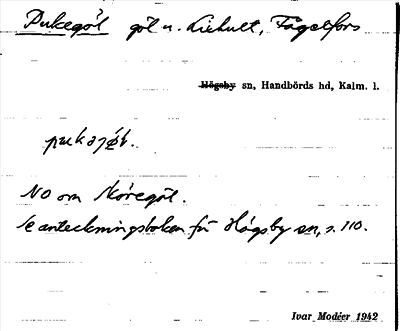 Pukegöl göl n. Liehult, Fågelfors
Högsby sn, Handbörds hd, Kalm. l.
NO om Skóregöl.
Se anteckningsboken för Högsby sn, s. 110.
Ivar Modéer 1942